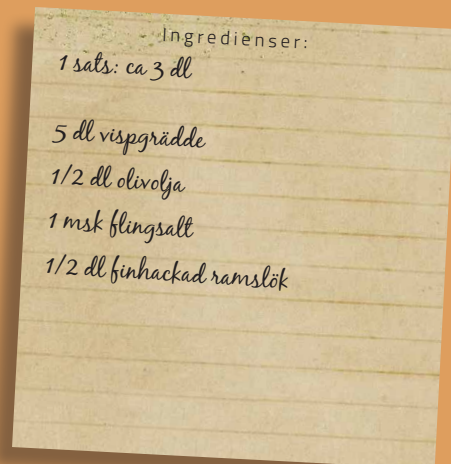 Ingredienser:
1 sats: ca 3 dl
5 dl vispgrädde
1/2 dl olivolja
1 msk flingsalt
1/2 dl finhackad ramslök